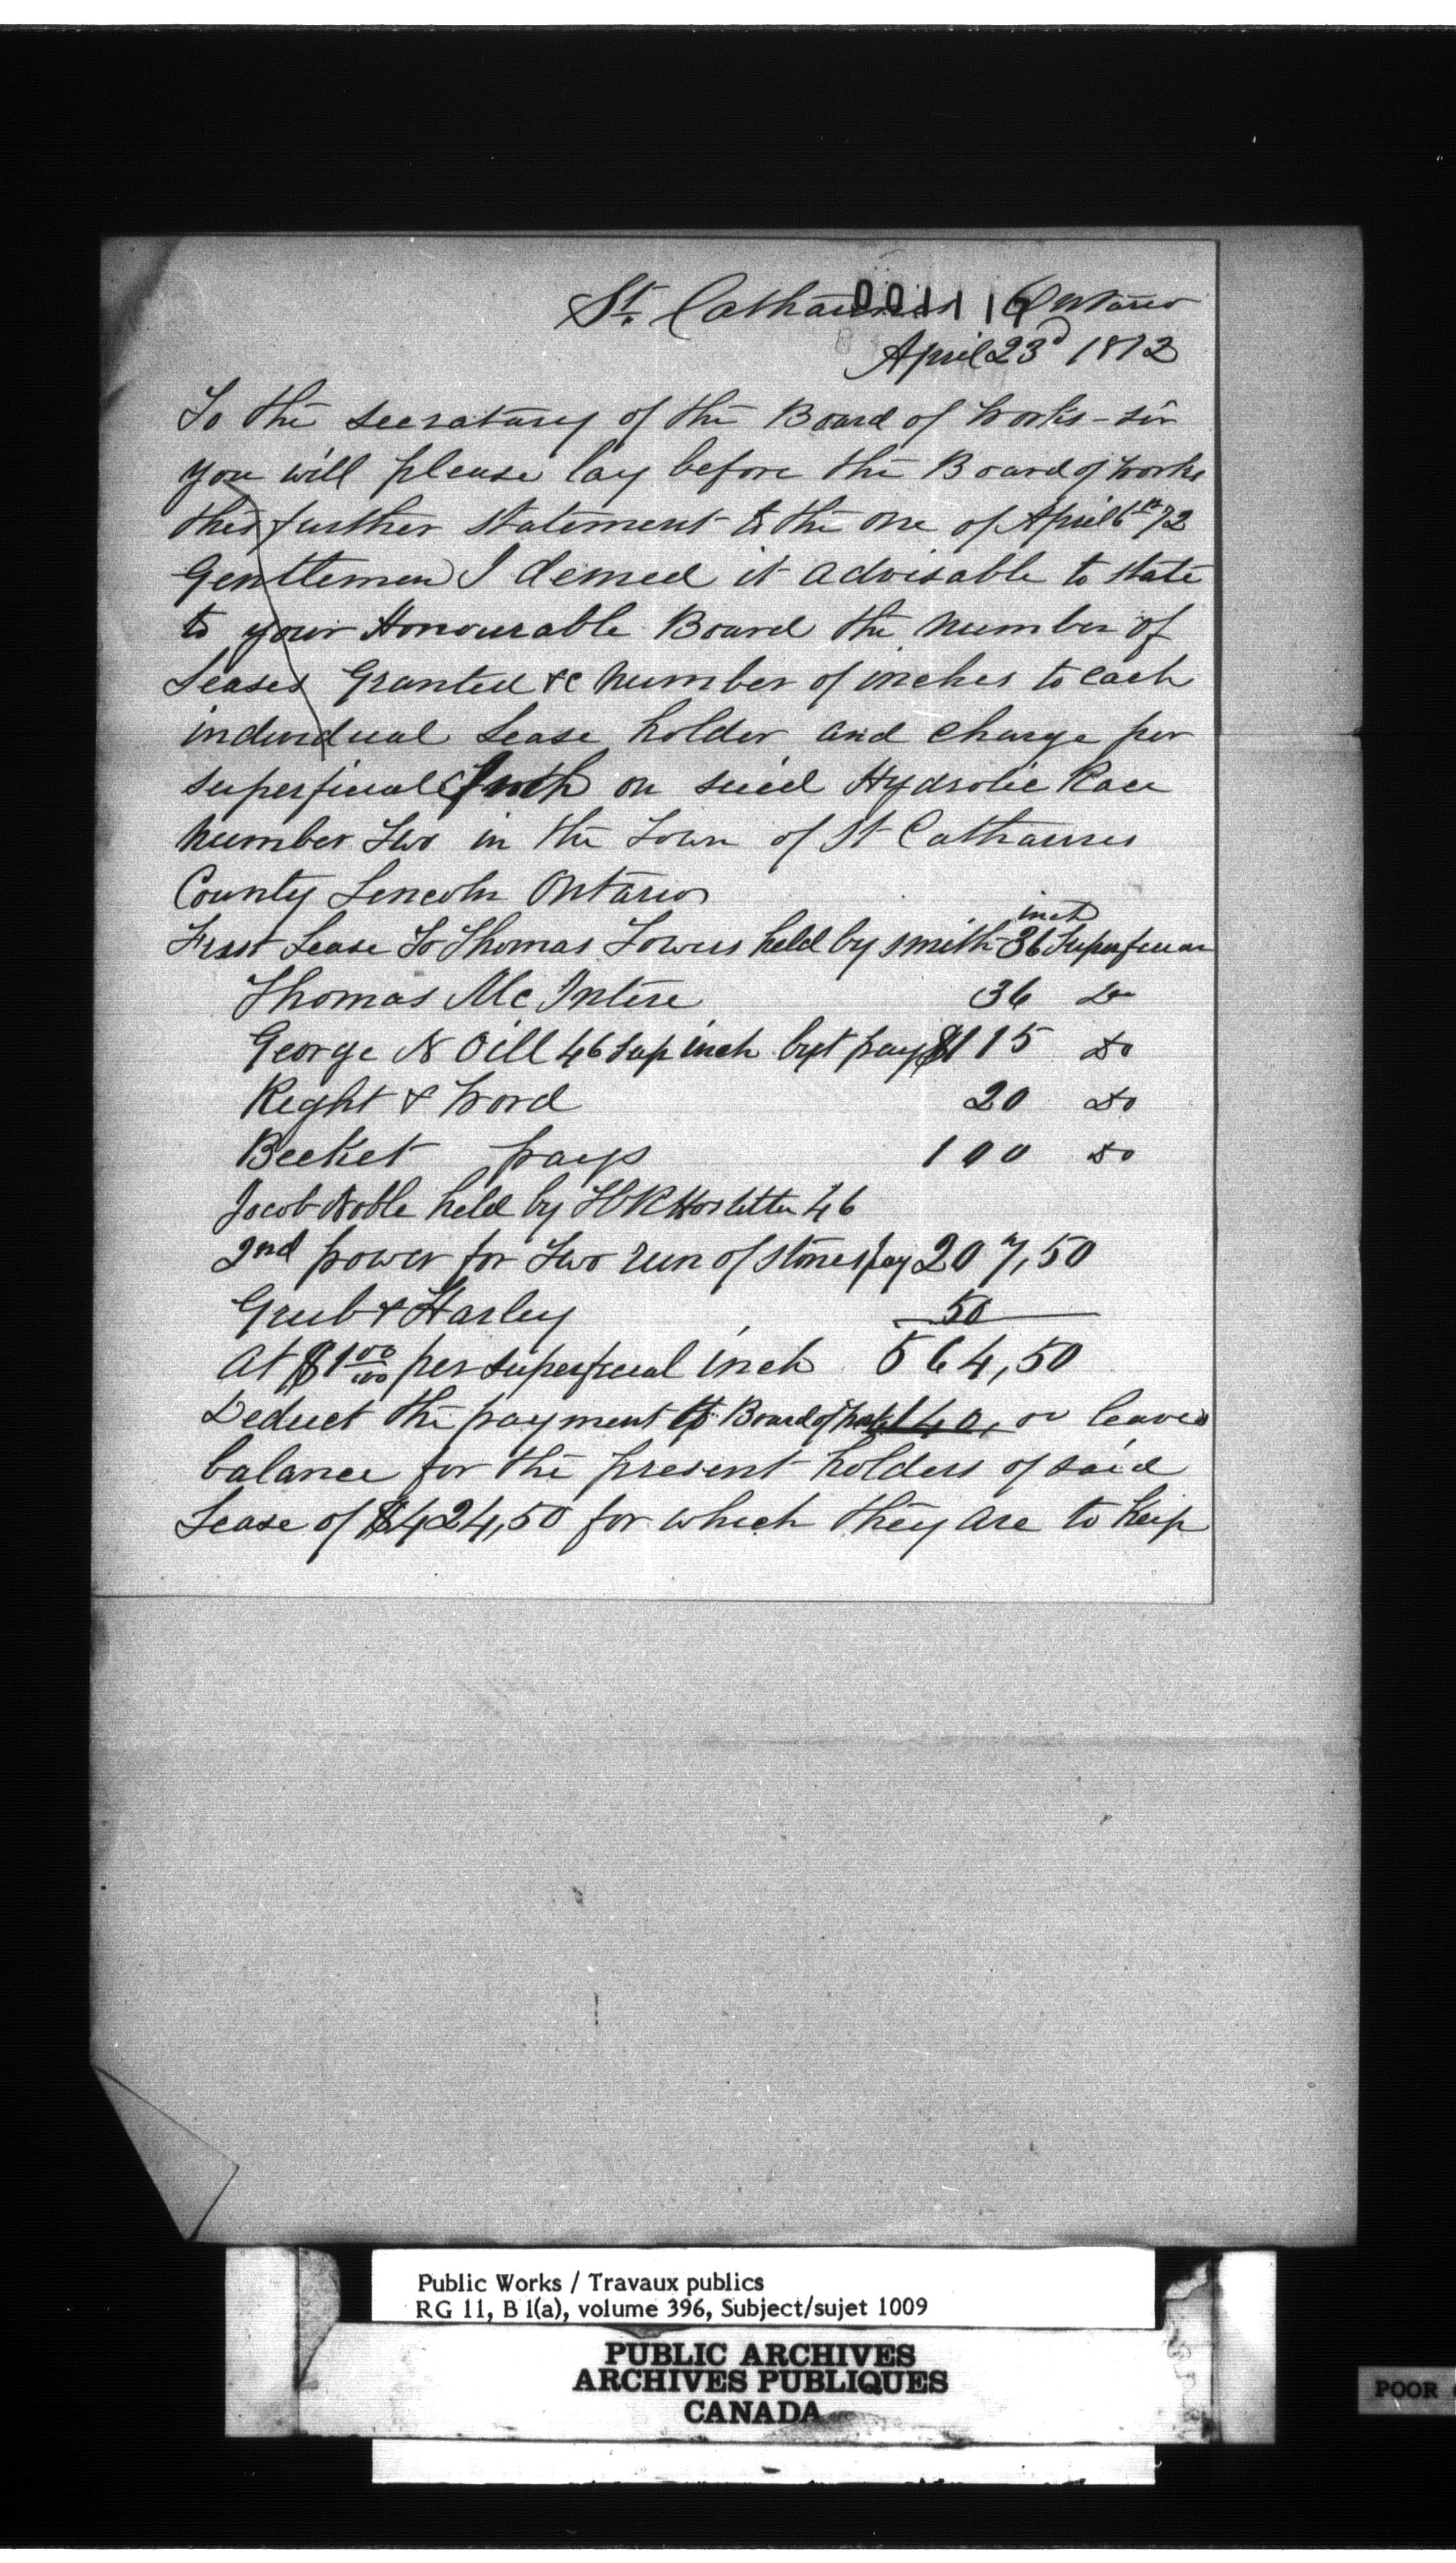 St. Catharines Ontario
001116
April 23d 1872
To the Secratary of the Board of Works - Sir
you will please lay before the Board of Works
this further statement to the one of April 6th 72
Gentlemen I demed it advisable to state
to your Honourable Board the number of
Leases Granted &c number of inches to each
individual Lease holder and charge per
superficial Inch on said Hydrolic Race
number Two in the Town of St Catharines
County Lincoln Ontario
inch
First Lease To Thomas Towers held by Smith 36 Superficial
Thomas McIntire 36 Do
George N Oill 46 sup inch but pays $115 Do
Right & Word 20 Do
Becket pays 100 Do
Jacob Noble held by Hostetter 46
2nd power for Two run of stones pay 207,50
Grub & Harley 50
At $1 00/100 per superficial inch 564,50
Deduct the payment to Board of Works 140, or leaves
balance for the present holders of said
Lease of $424,50 for which they are to keep
Public Works / Travaux publics
RG 11, B 1(a), volume 396, Subject/sujet 1009
PUBLIC ARCHIVES
ARCHIVES PUBLIQUES
CANADA
POOR